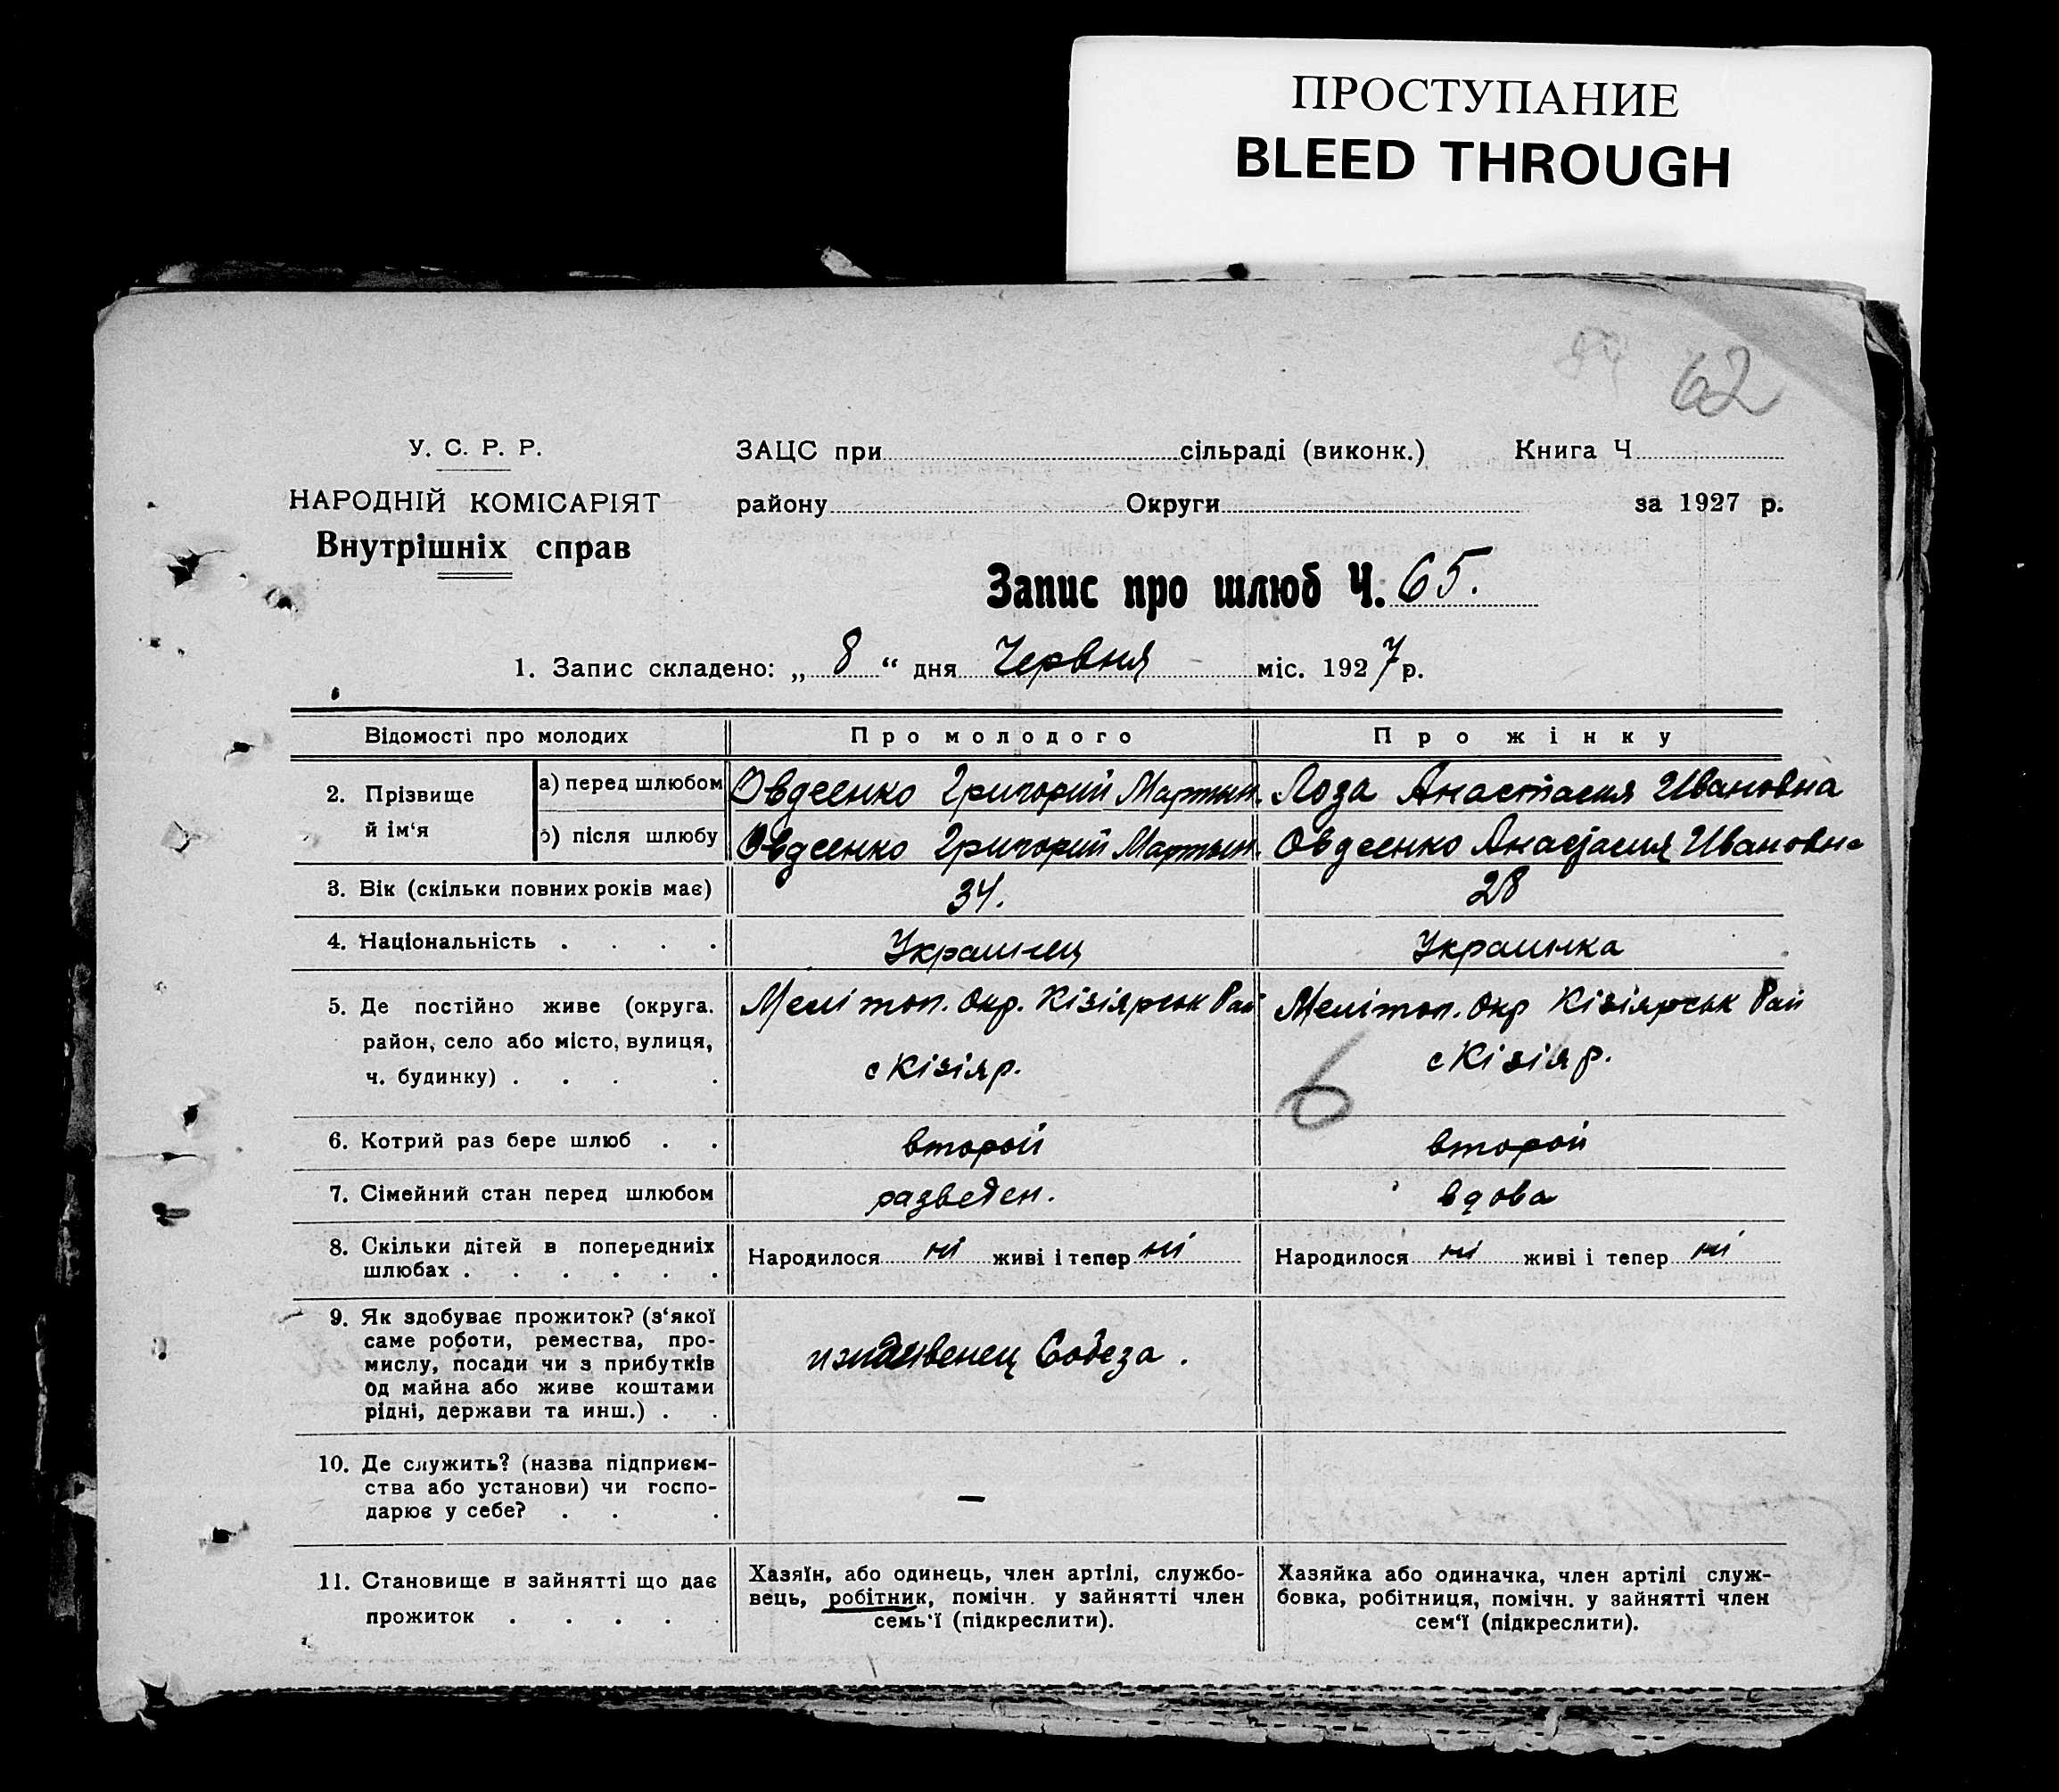 ПРОСТУПАНИЕ
BLEED THROUGH
62
У. С. Р. Р.
НАРОДНІЙ КОМІСАРІЯТ
Внутрішніх справ
ЗАЦС при сільраді (виконк.) Книга Ч
району Округи за 1927 р.
Запис про шлюб Ч. 65.
1. Запис складено: „ 8 “ дня Червня міс. 1927 р.
Відомості про молодих Про молодого Про жінку
2. Прізвище й ім‘я
а) перед шлюбом Овдеенко Григорий Мартын. Лоза Анастасия Ивановна
б) після шлюбу Овдеенко Григорий Мартын. Овдеенко Анастасия Ивановна
3. Вік (скільки повних років має) 34. 28
4. Національність . . . . Украинец Украинка
5. Де постійно живе (округа, район, село або місто, вулиця, ч. будинку) . . .
Мелітоп. Окр. Кізіярськ Рай
с Кізіяр.
Мелітоп. Окр Кізіярськ Рай
с Кізіяр.
6
6. Котрий раз бере шлюб . . второй второй
7. Сімейний стан перед шлюбом разведен. вдова
8. Скільки дітей в попередниіх
шлюбах . . . . . .
Народилося ні живі і тепер ні Народилося ні живі і тепер ні
9. Як здобуває прожиток? (з‘якої
саме роботи, ремества, про-
мислу, посади чи з прибутків
од майна або живе коштами
рідні, держави та инш.) . .
иждивенец Собеза.
10. Де служить? (назва підприєм-
ства або установи) чи госпо-
дарює у себе? . . .
—
11. Становище в зайнятті що дає
прожиток . . . .
Хазяїн, або одинець, член артілі, службо-
вець, робітник, помічн. у зайнятті член
семь‘ї (підкреслити).
Хазяйка або одиначка, член артілі служ-
бовка, робітниця, помічн. у зайнятті член
сем‘ї (підкреслити).